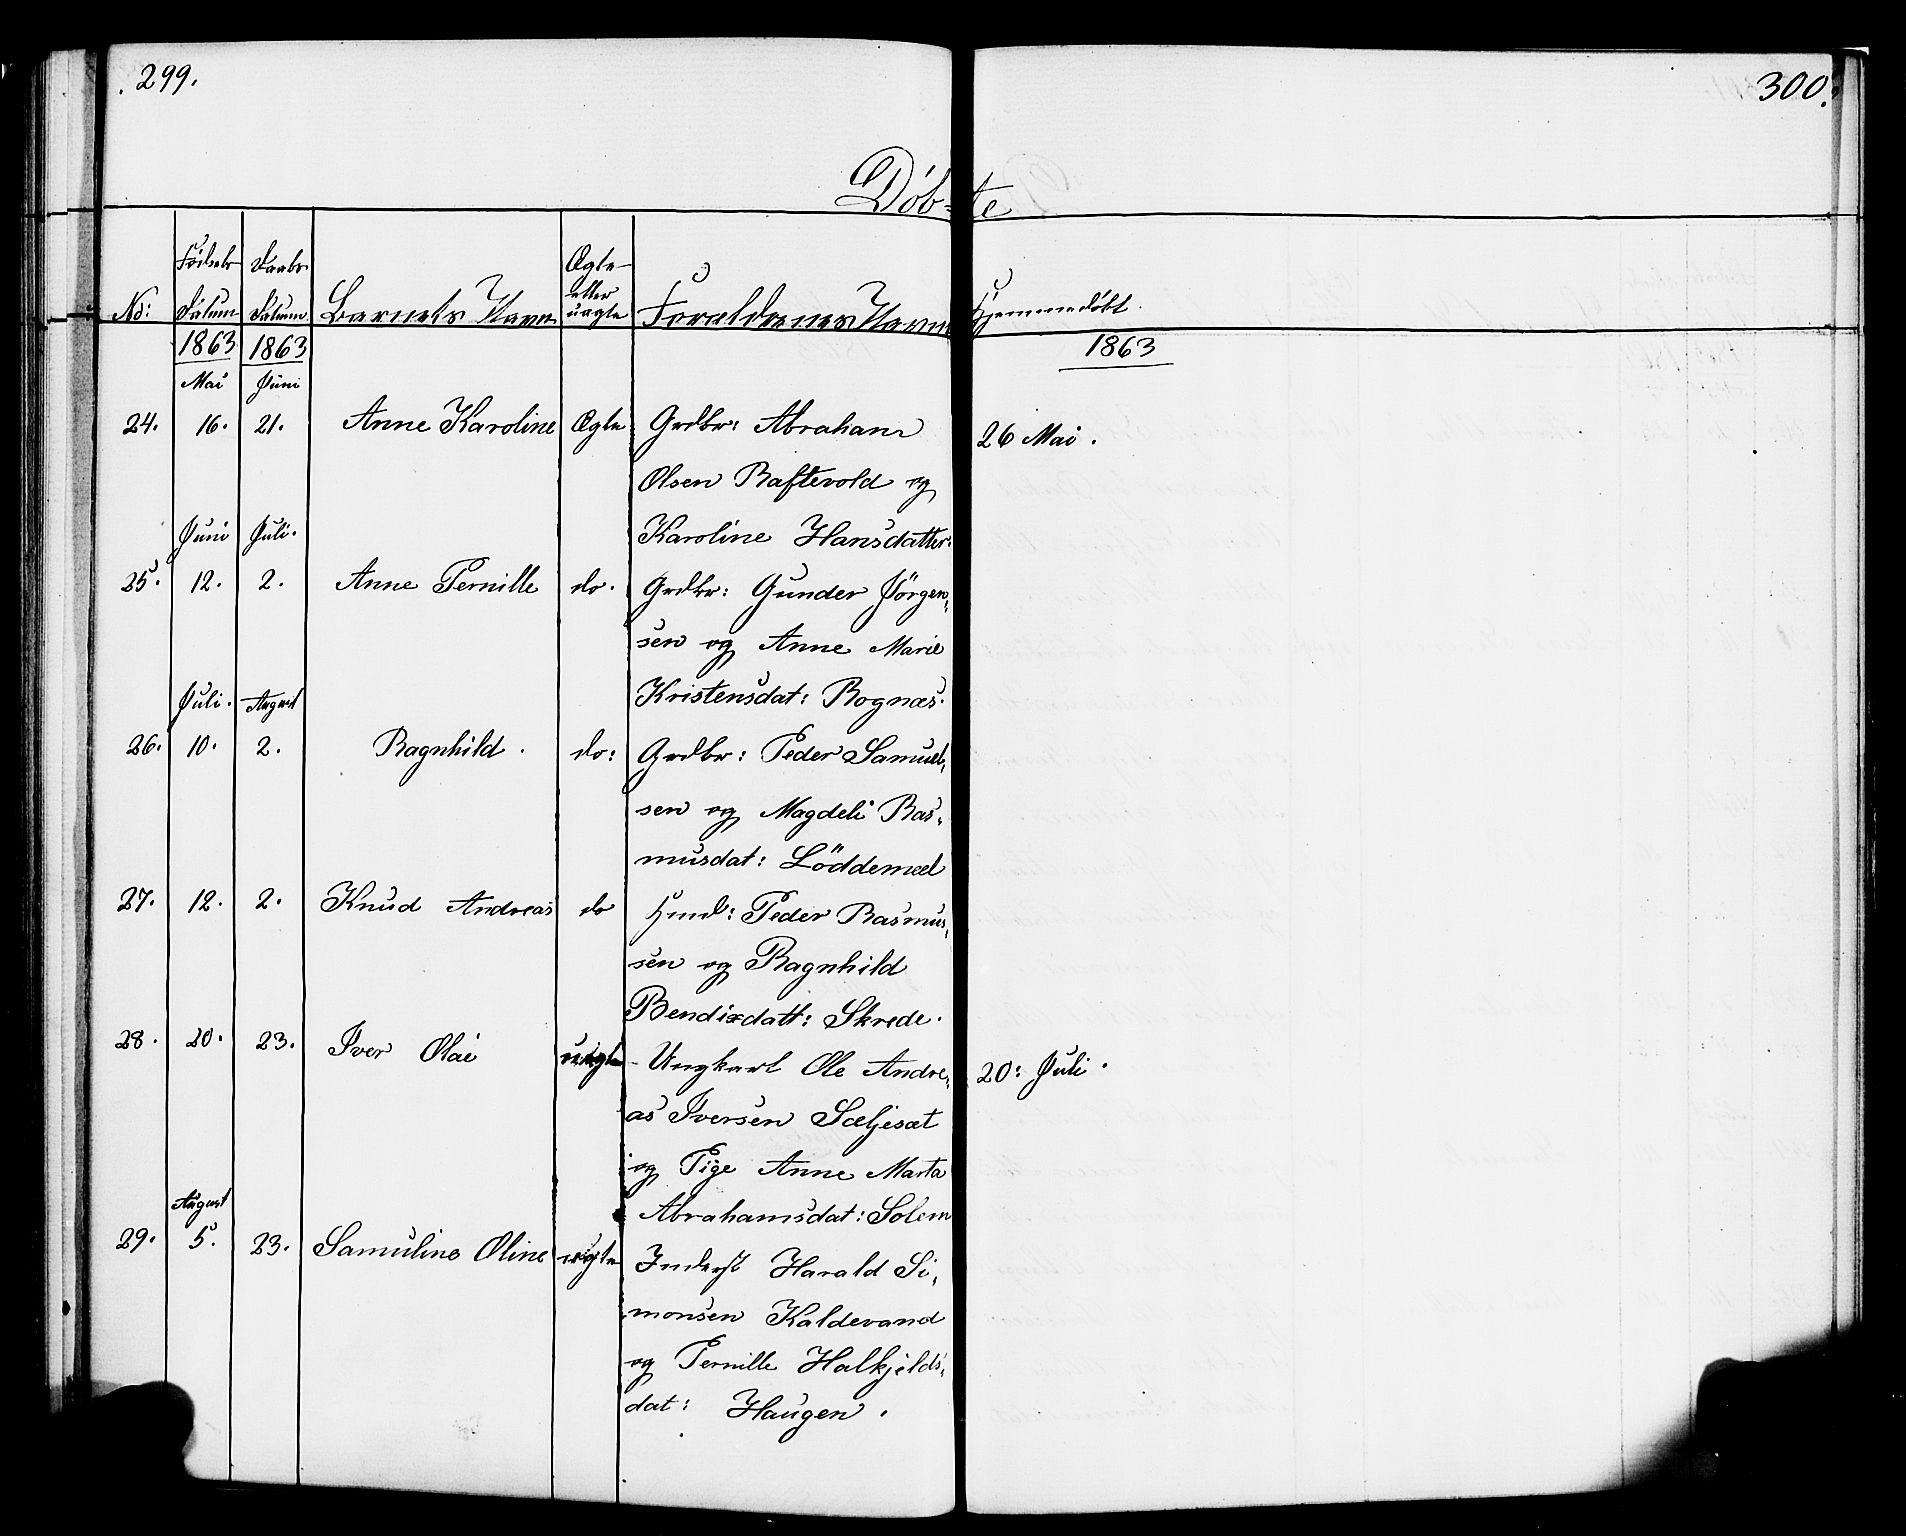 299.
300.
Döb-te
No: Födsels Datum Daabs Datum Barnets Navn Ægte eller uægte Forældrenes Navne Hjemmedöbt.
1863 1863 1863
Mai Juni
24. 16. 21. Anne Karoline Ægte Grdbr: Abraham 26 Mai.
Olsen Raftevold og
Juni Juli. Karoline Hansdatter.
25. 12. 2. Anne Pernille do. Grdbr: Gunder Jörgen-
sen og Anne Marie
Juli. August Kristensdat: Rognæs.
26. 10. 2. Ragnhild. do: Grdbr: Peder Samuel-
sen og Magdeli Ras-
musdat: Löddemeel
27. 12. 2. Knud Andreas do Huusm: Peder Rasmus-
sen og Ragnhild
Bendixdatt: Skrede.
28. 20. 23. Iver Olai uægte Ungkarl Ole Andre- 20: Juli.
as Iversen Sæljesæt
og Pige Anne Marta
August Abrahamsdat: Solem
29. 5. 23. Samuline Oline uægte Inderst Harald Si-
monsen Kaldevand
og Pernille Halkjelds-
dat: Haugen.